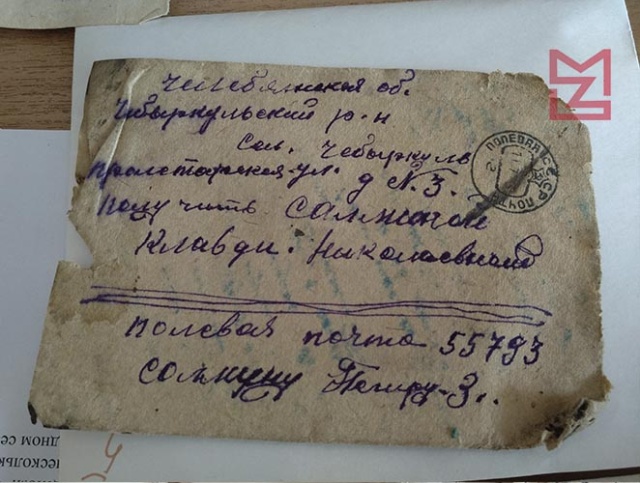 Челябинская об.
Чебаркульский р-н
сел. Чебаркуль
пролетарская-ул. д №3.
получить Самкиной
Клавди. Николаевной
полевая почта 55793
Самкину Петру-З..
ПОЛЕВАЯ ПОЧТА СССР
ДНОМ СЕ
НЕСКОЛЬК